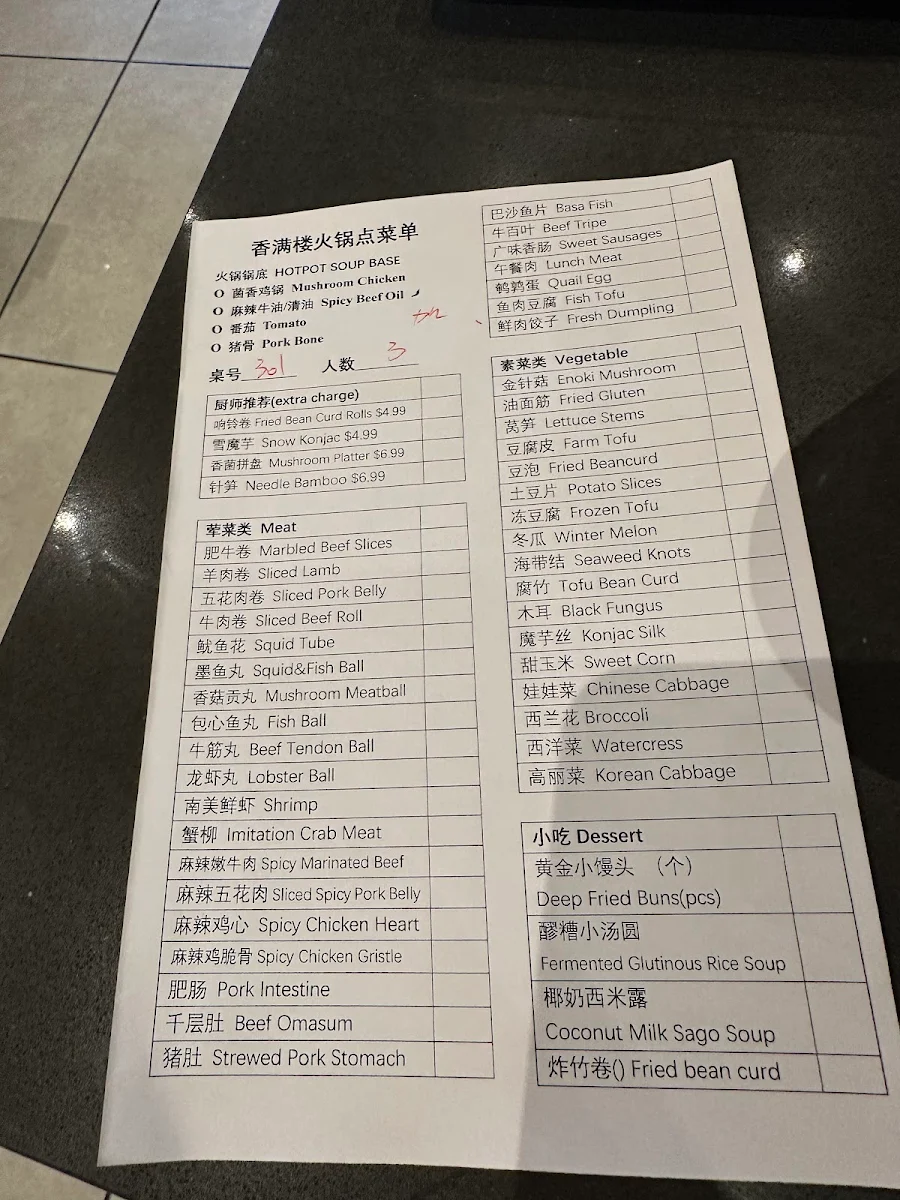 香满楼火锅点菜单
火锅锅底 HOTPOT SOUP BASE
O 菌香鸡锅 Mushroom Chicken
O 麻辣牛油/清油 Spicy Beef Oil
O 番茄 Tomato
O 猪骨 Pork Bone
桌号 301 人数 3
厨师推荐(extra charge)
响铃卷 Fried Bean Curd Rolls $4.99
雪魔芋 Snow Konjac $4.99
香菌拼盘 Mushroom Platter $6.99
针笋 Needle Bamboo $6.99
荤菜类 Meat
肥牛卷 Marbled Beef Slices
羊肉卷 Sliced Lamb
五花肉卷 Sliced Pork Belly
牛肉卷 Sliced Beef Roll
鱿鱼花 Squid Tube
墨鱼丸 Squid&Fish Ball
香菇贡丸 Mushroom Meatball
包心鱼丸 Fish Ball
牛筋丸 Beef Tendon Ball
龙虾丸 Lobster Ball
南美鲜虾 Shrimp
蟹柳 Imitation Crab Meat
麻辣嫩牛肉 Spicy Marinated Beef
麻辣五花肉 Sliced Spicy Pork Belly
麻辣鸡心 Spicy Chicken Heart
麻辣鸡脆骨 Spicy Chicken Gristle
肥肠 Pork Intestine
千层肚 Beef Omasum
猪肚 Strewed Pork Stomach
巴沙鱼片 Basa Fish
牛百叶 Beef Tripe
广味香肠 Sweet Sausages
午餐肉 Lunch Meat
鹌鹑蛋 Quail Egg
鱼肉豆腐 Fish Tofu
鲜肉饺子 Fresh Dumpling
素菜类 Vegetable
金针菇 Enoki Mushroom
油面筋 Fried Gluten
莴笋 Lettuce Stems
豆腐皮 Farm Tofu
豆泡 Fried Beancurd
土豆片 Potato Slices
冻豆腐 Frozen Tofu
冬瓜 Winter Melon
海带结 Seaweed Knots
腐竹 Tofu Bean Curd
木耳 Black Fungus
魔芋丝 Konjac Silk
甜玉米 Sweet Corn
娃娃菜 Chinese Cabbage
西兰花 Broccoli
西洋菜 Watercress
高丽菜 Korean Cabbage
小吃 Dessert
黄金小馒头 （个）
Deep Fried Buns(pcs)
醪糟小汤圆
Fermented Glutinous Rice Soup
椰奶西米露
Coconut Milk Sago Soup
炸竹卷() Fried bean curd